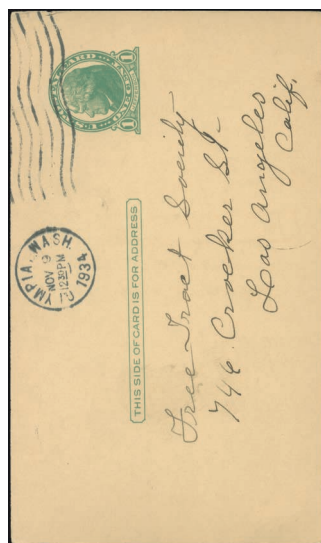 U.S. POSTAL CARD ONE CENT
OLYMPIA, WASH.
NOV 9
12 30 PM
1934
THIS SIDE OF CARD IS FOR ADDRESS
Free Tract Society
746 Crocker St.
Los Angeles
Calif.